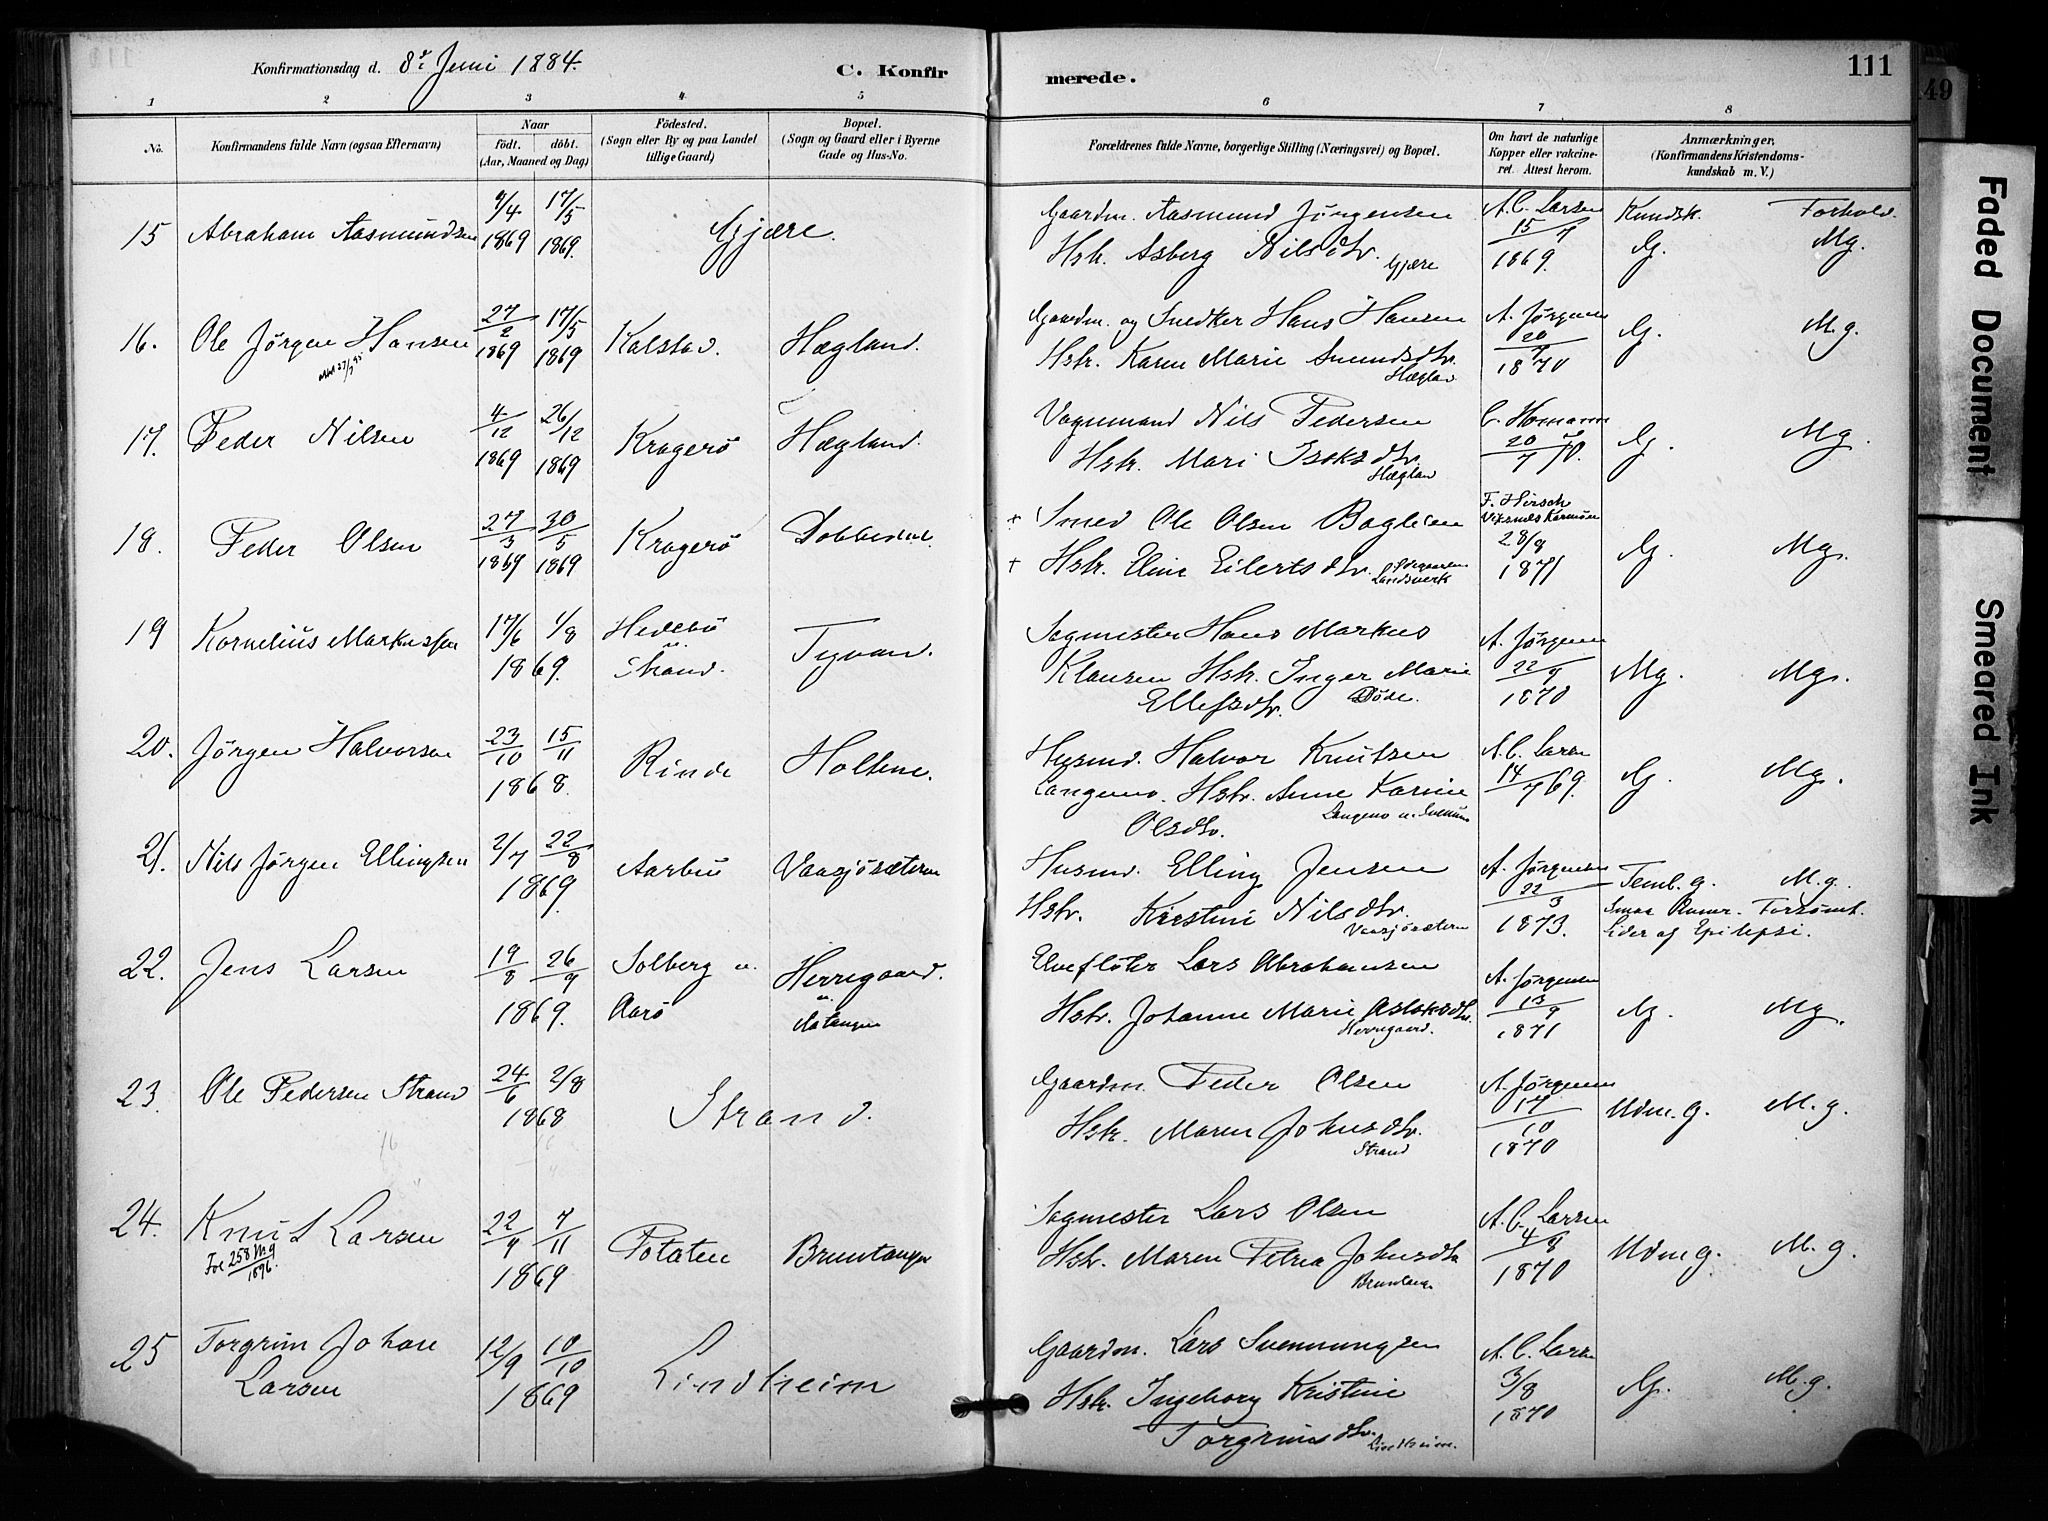 Konfirmationsdag d. 8de Juni 1884. C. Konfirmerede. 111
1 2 3 4 5 6 7 8
No. Konfirmandens fulde Navn (ogsaa Efternavn) Naar født. døbt. (Aar, Maaned og Dag) Födested. (Sogn eller By og paa Landet tillige Gaard) Bopæl. (Sogn og Gaard eller i Byerne Gade og Hus-No. Forældrenes fulde Navne, borgerlige Stilling (Næringsvei) og Bopæl. Om havt de naturlige Kopper eller vakcineret. Attest herom. Anmærkninger, (Konfirmandens Kristendomskundskab m. V.)
15 Abraham Aasmundsen 9/4 1869 17/5 1869. Gjære. Gaardm. Aasmund Jørgensen A. C. Larsen 15/7 1869. Kundsk. Forhold
Hstr. Asberg Nilsdtr. Gjære G. Mg.
16. Ole Jørgen Hansen 27/2 1869 17/5 1869 Kalstad. Hægland. Gaardm. og Snedker Hans Hansen A. Jørgensen 20/7 1870 G. M.g.
Hstr. Karen Marie Amundsdtr. Hægland
17. Peder Nilsen 4/12 1869 26/12 1869 Kragerö Hægland. Vognmand Nils Pedersen C. Homann 20/7 70. G. Mg.
Hstr. Mari Isaksdtr. Hægland
18. Peder Olsen 27/3 1869 30/5 1869 Kragerö Dobbedal. + Smed Ole Olsen F. Hirsch 28/9 1871 G. Mg.
+ Hstr. Eline Eilertsdtr. Landsverk
19 Kornelius Markussen 17/6 1/8 1869. Hedebö u. Strand. Tyvan. Sagmester Hans Markus A. Jørgensen 22/9 1870 Mg. Mg.
Klausen Hstr. Inger Marie
Ellefsdtr.
20. Jørgen Halvorsen 23/10 15/11 1868. Rinde Holtene. Husmd. Halvor Knutsen A. C. Larsen 14/7 69. G. Mg.
Langemo. Hstr. Anne Karine
Olsdtr. Langemo u.
21. Nils Jørgen Ellingsen 2/7 22/8 1869. Aarbu Vaasjösætern Husmd. Elling Jensen A. Jørgensen 22/3 1873. Teml. g. M.g.
Hstr. Kirstine Nilsdtr. Vaasjösætern Smaa Evner. Forsömt.
Lider af Epilepsi.
22. Jens Larsen 19/8 26/9 1869. Solberg u. Aarö Herregaard. u. Elvefløter Lars Abrahamsen A. Jørgensen 13/9 1871 G. Mg.
Hstr. Johanne Marie Aslaksdtr. Herregaard.
23. Ole Pedersen Strand 24/6 2/8 1868 Strand. Gaardm. Peder Olsen A. Jørgensen 17/10 1870 Udm. g. M. g.
Hstr. Maren Johnsdtr. Strand
24. Knut Larsen 22/9 7/11 1869 Potaten Bruntangen Sagmester Lars Olsen A. C. Larsen 4/8 1870 Udm g. M. g.
258 Mg 1896. Hstr. Maren Petrea Johnsdtr.
25 Torgrim Johan 12/9 10/10 1869 Lindheim Gaardm. Lars Svenningsen A. C. Larsen 3/8 1870 G. M.g.
Larsen Hstr. Ingeborg Kristine
Torgrimsdtr. Lindheim.
149
Faded Document
Smeared Ink